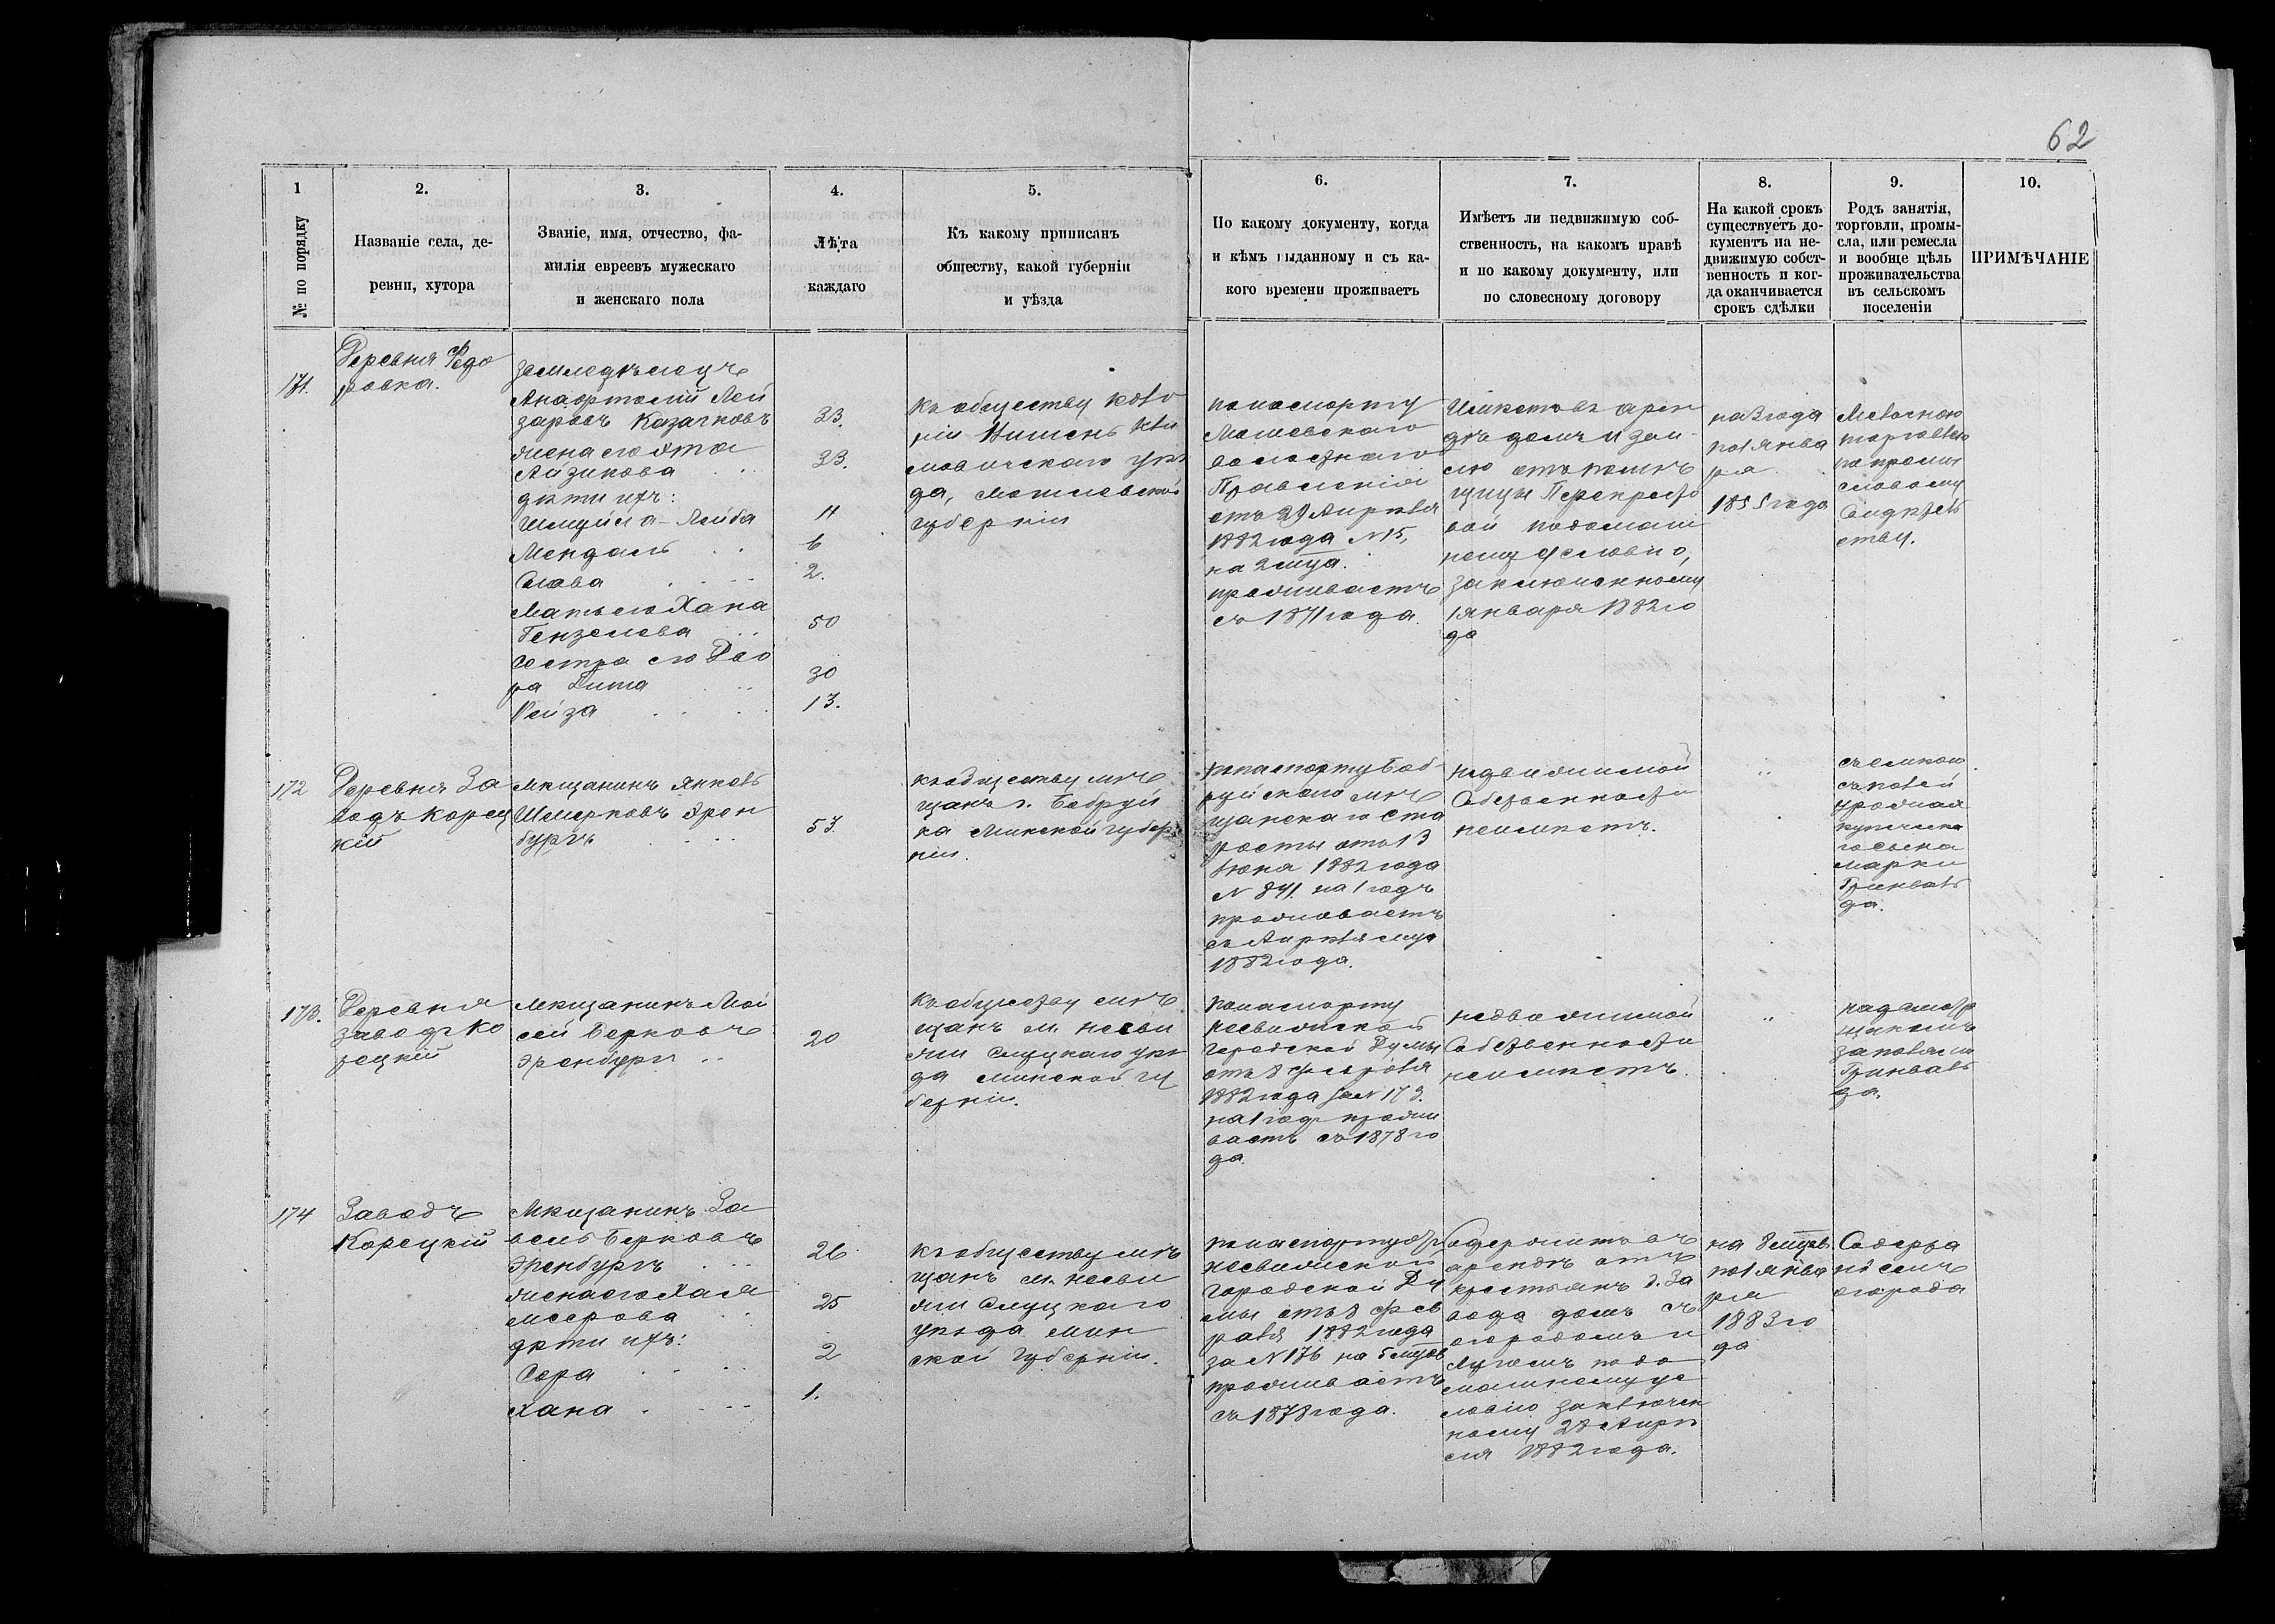 62
1
№ по порядку
2.
Названіе села, де-
ревни, хутора
3.
Званіе, имя, отчество, фа-
милія евреевъ мужескаго
и женскаго пола
4.
Лѣта
каждаго
5.
Къ какому приписанъ
обществу, какой губерніи
и уѣзда
6.
По какому документу, когда
и кѣмъ выданному и съ ка-
кого времени проживаетъ
7.
Имѣетъ ли недвижимую соб-
ственность, на какомъ правѣ
и по какому документу, или
по словесному договору
8.
На какой срокъ
существуетъ до-
кументъ на не-
движимую собст-
венность и ког-
да оканчивается
срокъ сдѣлки
9.
Родъ занятія,
торговли, промы-
сла, или ремесла
и вообще цѣль
проживательства
въ сельскомъ
поселеніи
10.
ПРИМѢЧАНІЕ
171.
Деревня Ѳедо
ровка.
Земледѣлецъ
Лей
заровъ Казачковъ
жена его Эта
Айзикова
дѣти ихъ:
Шмуйла-Лейба
Мендель
Слава
Мать его Хана
Гензелева
Сестра его Дво
ра Дита
Рейза
33.
33.
11
6
2.
50
30
13.
Къ обществу коло
ніи Кли
мовичскаго уѣз
да, Могилевской
губерніи
по паспорту
волостнаго
Правленія
отъ 29 Апрѣля
1882 года №15,
на
проживаетъ
съ 1871 года.
Имѣетъ въ арен
дѣ домъ и зем-
лю отъ помѣ
щицы Перекресто
вой по домаш
нему условію,
заключенному
1 января 1882 го
да
на 3 года
по 1 Янва
ря
1885 года
Мелочною
торговлею
по промы
словому
Свидѣтель
ству.
172
Деревня За
водъ Корец
кій
Мѣщанинъ Янкель
Шмерковъ Эрен
бургъ
53.
Къ обществу мѣ
щанъ г. Бобруй
ка Минской губер
ніи.
по паспорту Боб-
руйскаго мѣ
щанскаго Ста
росты отъ 13
Іюня 1882 года
№ 841. на 1 годъ
проживаетъ
съ Апрѣля мца
1882 года.
недвижимой
Собственности
неимѣетъ.
"
съемкою
съ полей
урожая
купеческа
го сына
Марки
Гринваль
да.
173.
Деревня
заводъ Ко
рецкій
Мѣщанинъ Мой
сей Берковъ
Эренбургъ
20
Къ обществу мѣ
щанъ м. Несви
жи Слуцкаго уѣз
да Минской гу
берніи.
По паспорту
несвижской
Городской Думы
отъ 8 февраля
1882 года за № 173.
на 1 годъ прожи
ваетъ съ 1878 го
да.
недвижимой
Собственности
неимѣетъ.
"
надсмотр
щикомъ
за полями
Гринваль
да.
174
Заводъ
Корецкій
Мѣщанинъ За
вель Берковъ
Эренбургъ
жена его Хая
Меерова
дѣти ихъ:
Сора
Хана
26
25
2
1.
Къ обществу мѣ
щанъ м. Несви
жи Слуцкаго
уѣзда Мин
ской Губерніи.
по паспорту
несвижской
городской Ду
мы отъ 8 фев
раля 1882 года
за № 176 на 5 мцевъ
проживаетъ
съ 1878 года.
Содержитъ въ
арендѣ отъ
крестьянъ д. За
вода домъ съ
огородомъ и
лугомъ по до
машнему ус
ловію заключен
ному 28 Апрѣ
ля 1882 года.
на 8 мцевъ
по 1 Янва
ря
1883 го
да
Содержа
ніемъ
огорода